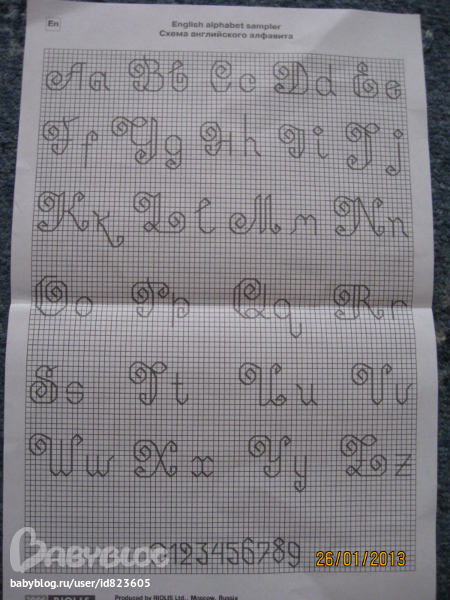 En
English alphabet sampler
Схема английского алфавита
Aa Bb Cc Dd Ee
Ff Gg Hh Ii Jj
Kk Ll Mm Nn
Oo Pp Qq Rr
Ss Tt Uu Vv
Ww Xx Yy Zz
0123456789
BABYBLOG
26/01/2013
babyblog.ru/user/id823605
RIOLIS Produced by RIOLIS Ltd., Moscow, Russia